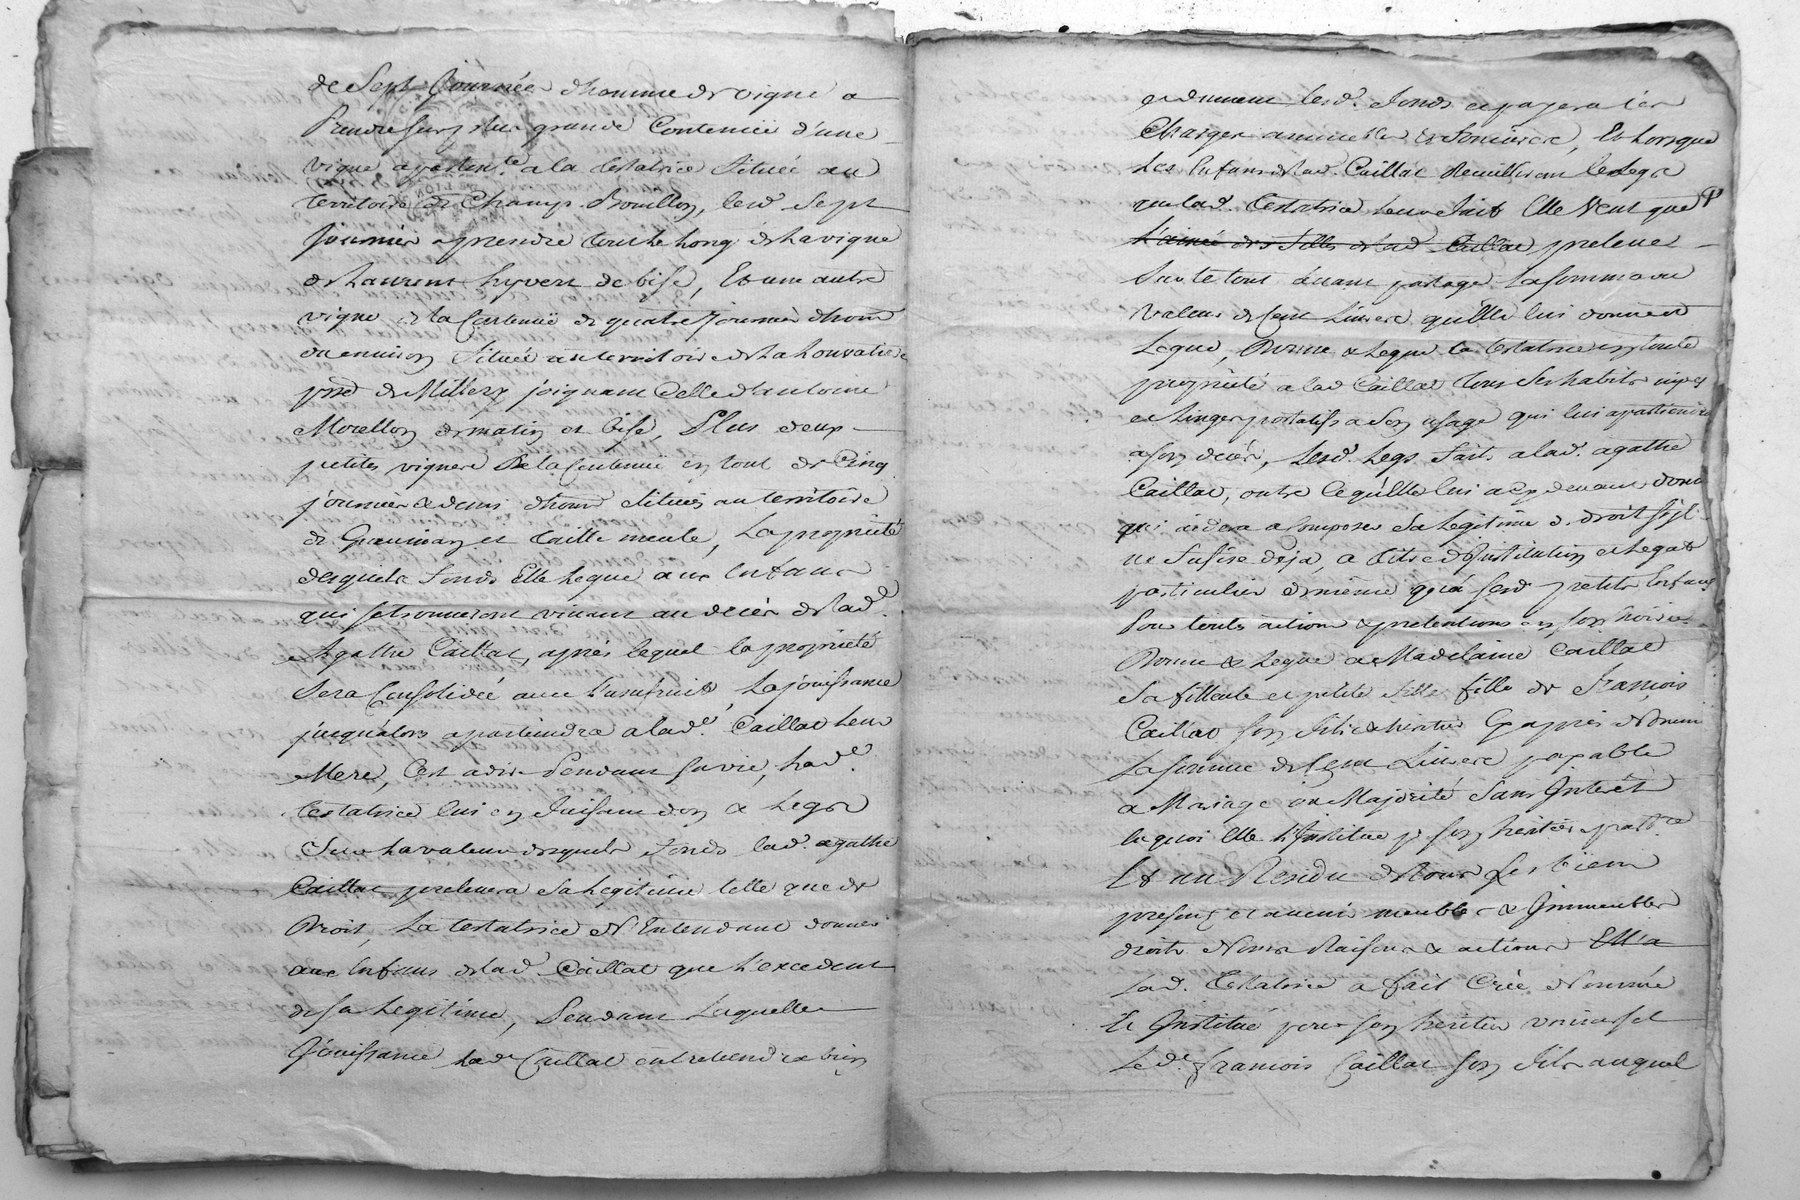 de Sept Journées d'homme de vigne a
Prendre sur plus grande Contenüe d'une
vigne apartente. a la testatrice Située au
territoire de Champ-Rouillon, lesd. Sept
journées a prendre tout le long de la vigne
de Laurent hyvert de bise, Et une autre
vigne de la Contenüe de quatre Journées dhome
ou environ Située au territoire de la
psse de Millery joignant Celle d'antoine
Morellon de matin et bise, Plus deux
petites vignes De la Contenüe en tout de Cinq
journées & demi dhome Situées au territoire
de et taille meule, La propriété
desquels fonds Elle Legue aux Enfans
qui se trouveront vivans au décés de lade.
Agathe Caillat, aprés lequel la propriété
Sera Consolidée avec l'usufruit, La jouissance
jusqu'alors apartiendra a lade. Caillat leur
Mere, C'est a dire Pendant sa vie, lade.
testatrice lui en faisant don & Legs
Sur la valeur desquels fonds lad. agathe
Caillat prelevera sa Legitime telle que de
Droit, La testatrice N'Entendant donner
aux Enfans de lad. Caillat que l'excedent
de sa Legitime, Pendant Laquelle
Jouissance lade Caillat entretiendra bien
et duement lesd. fonds et payera les
Charges annuelles & foncieres, Et lorsque
Les Enfans de lad. Caillat Recuilliront le Legs
que lad. testatrice leur fait Elle Veut que
L'ainée des filles de lad. Caillat preleve
Sur le tout avant partage La somme ou
valeur de Cent Livres qu'Elle lui donne et
Legue, Donne & Legue la testatrice en toute
propriété a lad Caillat tous Ses habits
et Linges portatifs a Son usage qui lui apartiendront
a son décés, Lesd. Legs faits a lad. agathe
Caillat, outre Ce qu'Elle lui a cy devant donné
qui aidera a Composer Sa Legitime de droit s'il
ne Sufise deja, a titre d'Institution et Legat
particulier de même qu'a sesd petits Enfans
Pour touts actions & pretentions en son hoirie.
Donne & Legue a Madelaine Caillat
Sa filleule et petite fille fille de François
Caillat Son fils & heritier Cy apprès Nommé
La somme de Cent Livres payable
a Mariage ou Majorité Sans Interêt
En quoi Elle l'Institue pr son heritiere partre
Et au Residu de tous ses biens
presens et avenir meubles & Immeubles
droits Noms Raisons & actions Ell'a
Lad. testatrice a fait Créé Nommé
Et Institué pour son heritier universel
Led. françois Caillat son fils auquel